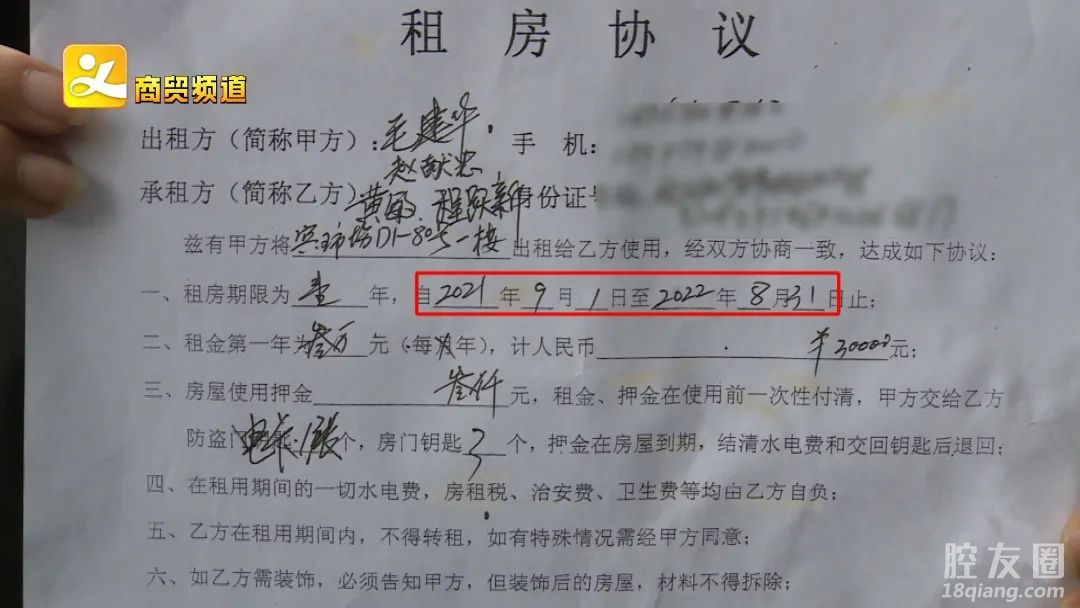 租房协议
商贸频道
出租方（简称甲方）：毛建华 手 机：
赵献忠
承租方（简称乙方）黄丽、程跃新身份证号
兹有甲方将宾王市场D1-80号一楼出租给乙方使用，经双方协商一致，达成如下协议：
一、租房期限为壹年，自2021年9月1日至2022年8月31日止；
二、租金第一年为叁万元（每年），计人民币￥30000元；
三、房屋使用押金叁仟元，租金、押金在使用前一次性付清，甲方交给乙方
防盗门电卡1张个，房门钥匙3个，押金在房屋到期，结清水电费和交回钥匙后退回；
四、在租用期间的一切水电费，房租税、治安费、卫生费等均由乙方自负；
五、乙方在租用期间内，不得转租，如有特殊情况需经甲方同意；
六、如乙方需装饰，必须告知甲方，但装饰后的房屋，材料不得拆除；
腔友圈
18qiang.com